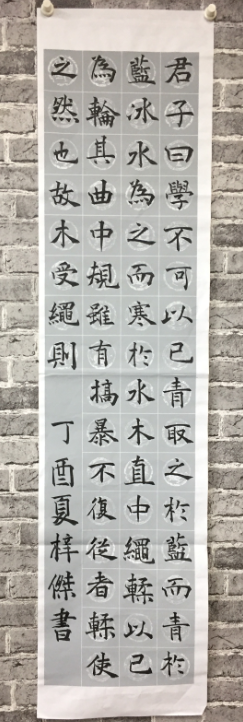 君子曰學不可以已青取之於藍而青於
藍冰水為之而寒於水木直中繩輮以已
為輪其曲中規雖有槁暴不復從者輮使
之然也故木受繩則
丁酉夏梓傑書